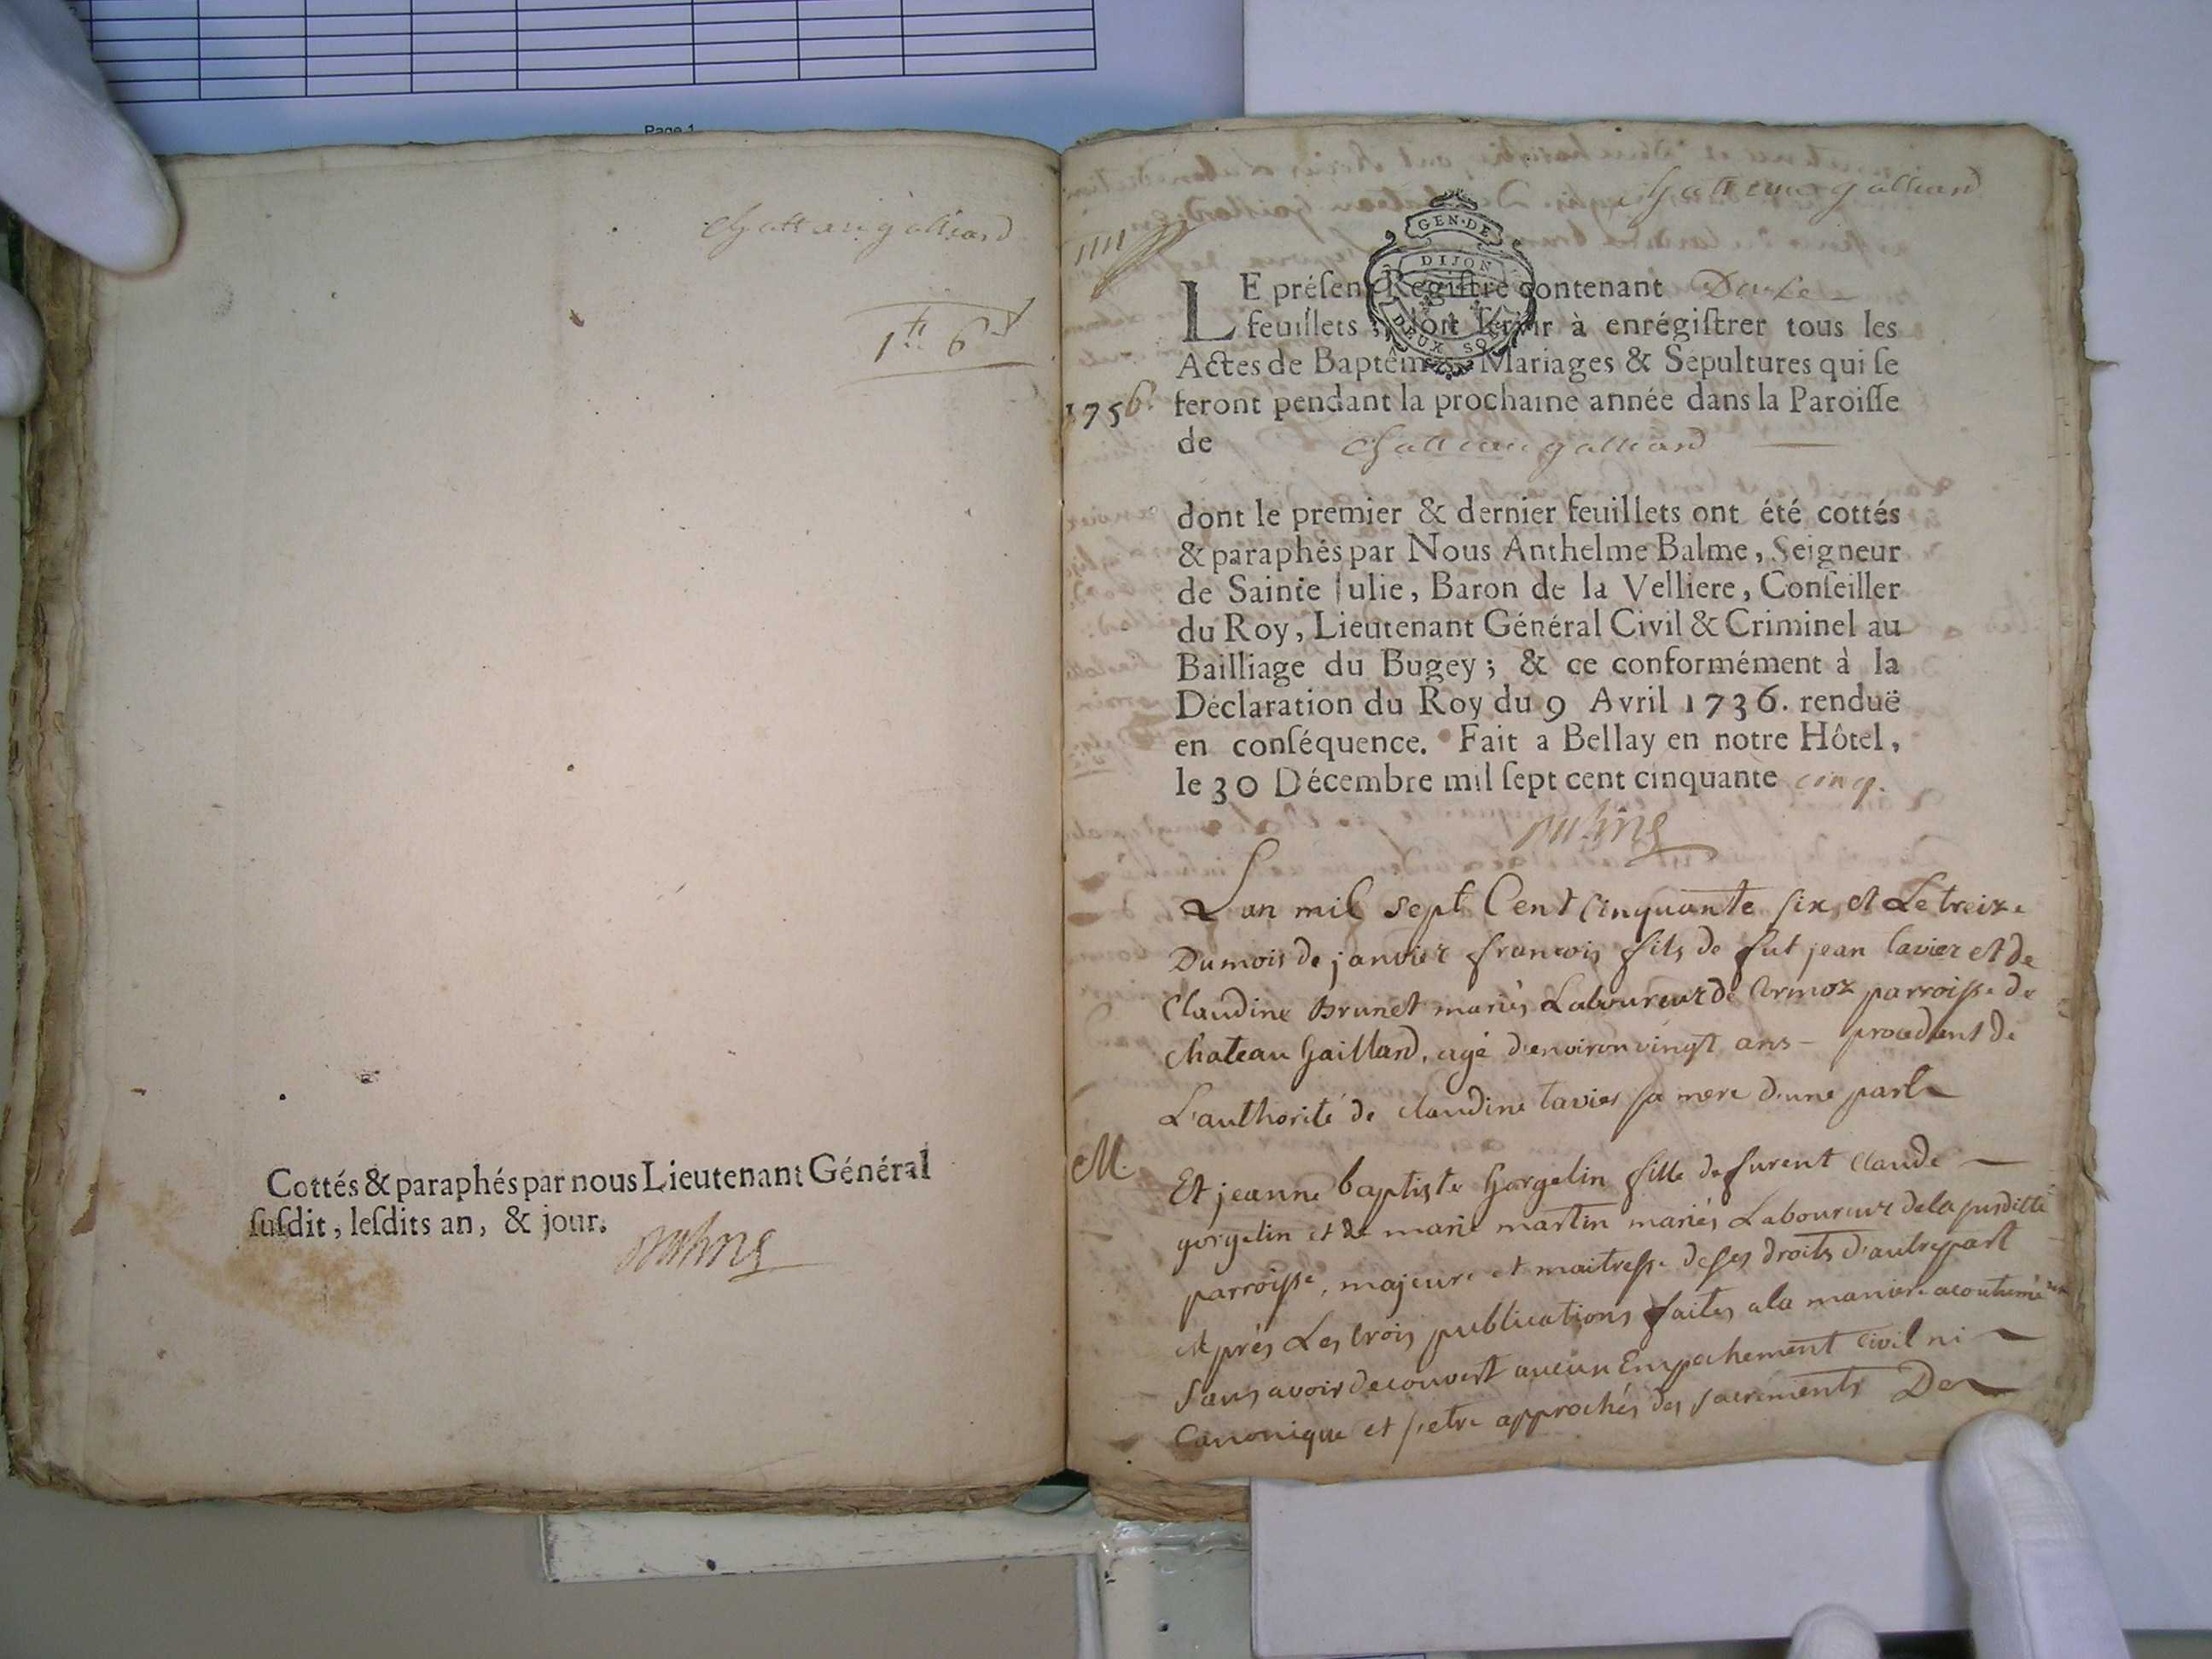 Page 1
Chatteaugalliard
1tt 6d
Cottés & paraphés par nous Lieutenant Général
ſuſdit, leſdits an, & jour.
Balme
Chatteaugalliard
GEN·DE
DIJON
DEUX SOLS
LE préſent Regiſtre contenant Douze
feuillets, doit ſervir à enrégiſtrer tous les
Actes de Baptêmes, Mariages & Sepultures qui ſe
1756. feront pendant la prochaine année dans la Paroiſſe
de Chatteaugalliard
dont le premier & dernier feuillets ont été cottés
& paraphés par Nous Anthelme Balme, Seigneur
de Sainte Julie, Baron de la Velliere, Conſeiller
du Roy, Lieutenant Général Civil & Criminel au
Bailliage du Bugey; & ce conformément à la
Déclaration du Roy du 9 Avril 1736. renduë
en conſéquence. Fait a Bellay en notre Hôtel,
le 30 Décembre mil ſept cent cinquante cinq.
Balme
Lan mil sept Cent Cinquante six et Le treize
Du mois de janvier francois fils de fut jean tavier et de
Claudine Brunet mariés Laboureur de Cormoz parroisse de
chateau Gaillard, agé d'environ vingt ans – procedant de
L'authorité de claudine tavier sa mere d'une part
M. Et jeanne baptiste Gorgelin fille de furent Claude
gorgelin et de marie martin mariés Laboureur de la susditte
parroisse, majeure et maitresse de ses droits d'autre part
Après Les trois publications faites a la maniere acoutumée
Sans avoir decouvert aucun Empechement Civil ni
Canonique et s'etre approchés des sacrements De